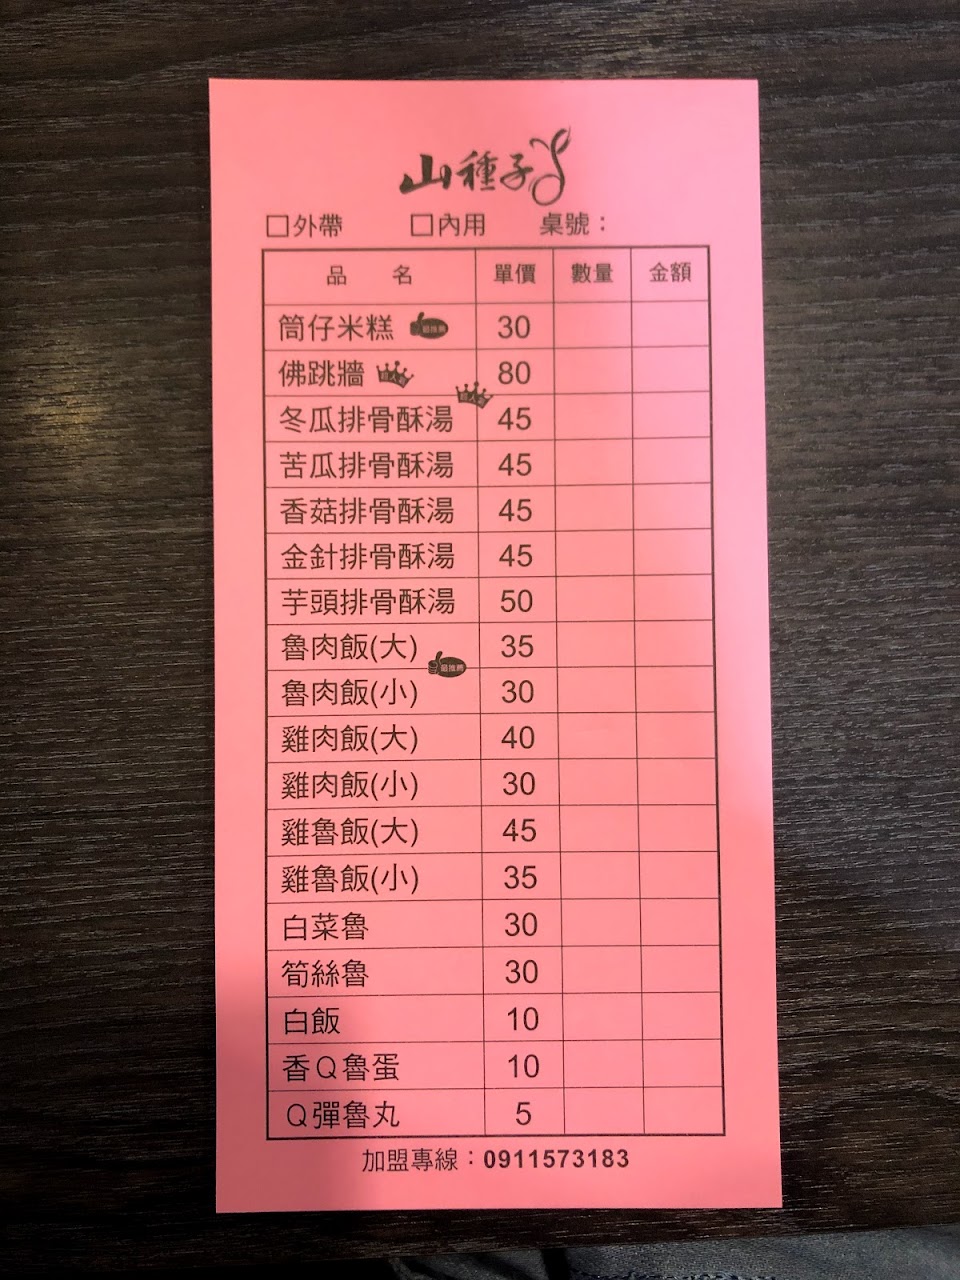 山種子
□外帶 □內用 桌號：
品 名 單價 數量 金額
筒仔米糕 最推薦 30
佛跳牆 80
冬瓜排骨酥湯 45
苦瓜排骨酥湯 45
香菇排骨酥湯 45
金針排骨酥湯 45
芋頭排骨酥湯 50
魯肉飯(大) 35
最推薦
魯肉飯(小) 30
雞肉飯(大) 40
雞肉飯(小) 30
雞魯飯(大) 45
雞魯飯(小) 35
白菜魯 30
筍絲魯 30
白飯 10
香Q魯蛋 10
Q彈魯丸 5
加盟專線：0911573183